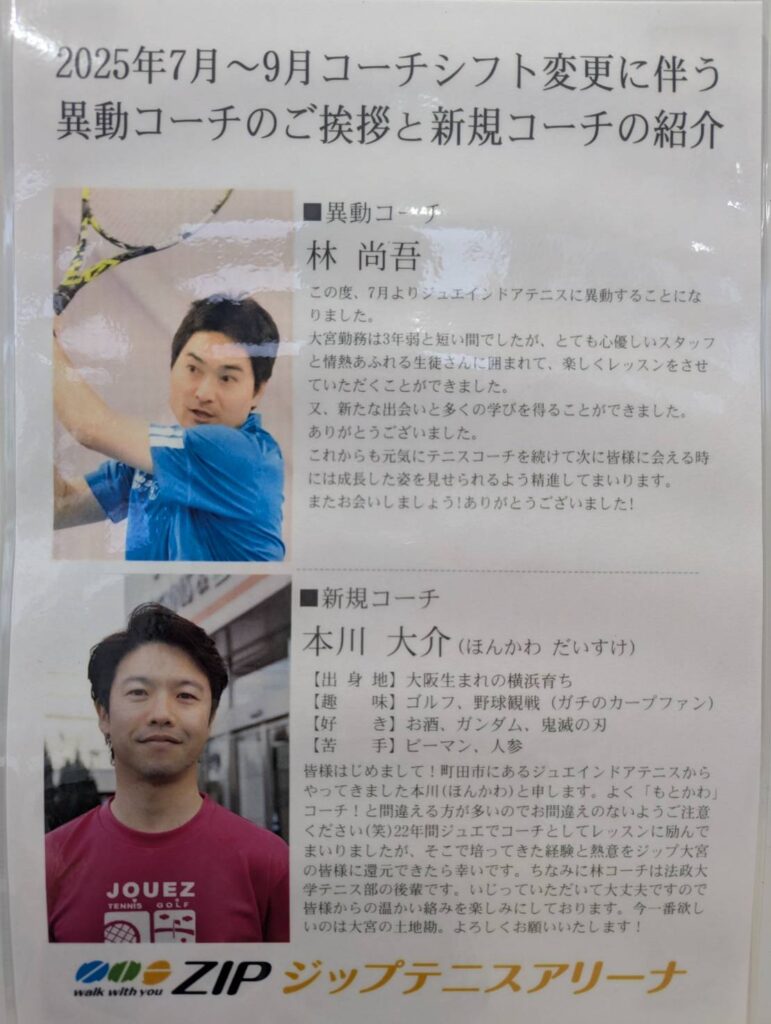 2025年7月～9月コーチシフト変更に伴う
異動コーチのご挨拶と新規コーチの紹介
■異動コーチ
林 尚吾
この度、7月よりジュエインドアテニスに異動することにな
りました。
大宮勤務は3年弱と短い間でしたが、とても心優しいスタッフ
と情熱あふれる生徒さんに囲まれて、楽しくレッスンをさせ
ていただくことができました。
又、新たな出会いと多くの学びを得ることができました。
ありがとうございました。
これからも元気にテニスコーチを続けて次に皆様に会える時
には成長した姿を見せられるよう精進してまいります。
またお会いしましょう!ありがとうございました!
■新規コーチ
本川 大介(ほんかわ だいすけ)
【出 身 地】大阪生まれの横浜育ち
【趣　　味】ゴルフ、野球観戦（ガチのカープファン）
【好　　き】お酒、ガンダム、鬼滅の刃
【苦　　手】ピーマン、人参
皆様はじめまして！町田市にあるジュエインドアテニスから
やってきました本川(ほんかわ)と申します。よく「もとかわ」
コーチ！と間違える方が多いのでお間違えのないようご注意
ください(笑)22年間ジュエでコーチとしてレッスンに励んで
まいりましたが、そこで培ってきた経験と熱意をジップ大宮
の皆様に還元できたら幸いです。ちなみに林コーチは法政大
学テニス部の後輩です。いじっていただいて大丈夫ですので
皆様からの温かい絡みを楽しみにしております。今一番欲し
いのは大宮の土地勘。よろしくお願いいたします！
JOUEZ
TENNIS GOLF
walk with you ZIP ジップテニスアリーナ